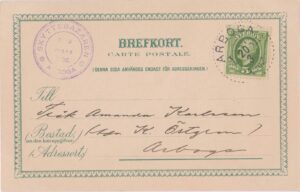 SKYTTEGILLET
ARBOGA
BREFKORT.
CARTE POSTALE.
(DENNA SIDA ANVÄNDES ENDAST FÖR ADRESSERINGEN.)
ARBOGA
5
Till
Amanda Karlsson
(Bostad)
K. Östgren)
(Adressort)
Arboga